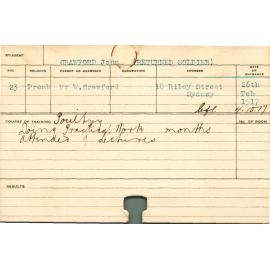 STUDENT
CRAWFORD John (RETURNED SOLDIER)
AGE RELIGION PARENT OR GUARDIAN OCCUPATION ADDRESS DATE OF ENTRANCE
23 Presb Mr W.Crawford 18 Riley Street 26th
Sydney Feb
1917
left 4.10.17
COURSE OF TRAINING Poultry No. OF ROOM
Doing Practical Work months
attended 9 Lectures
RESULTS